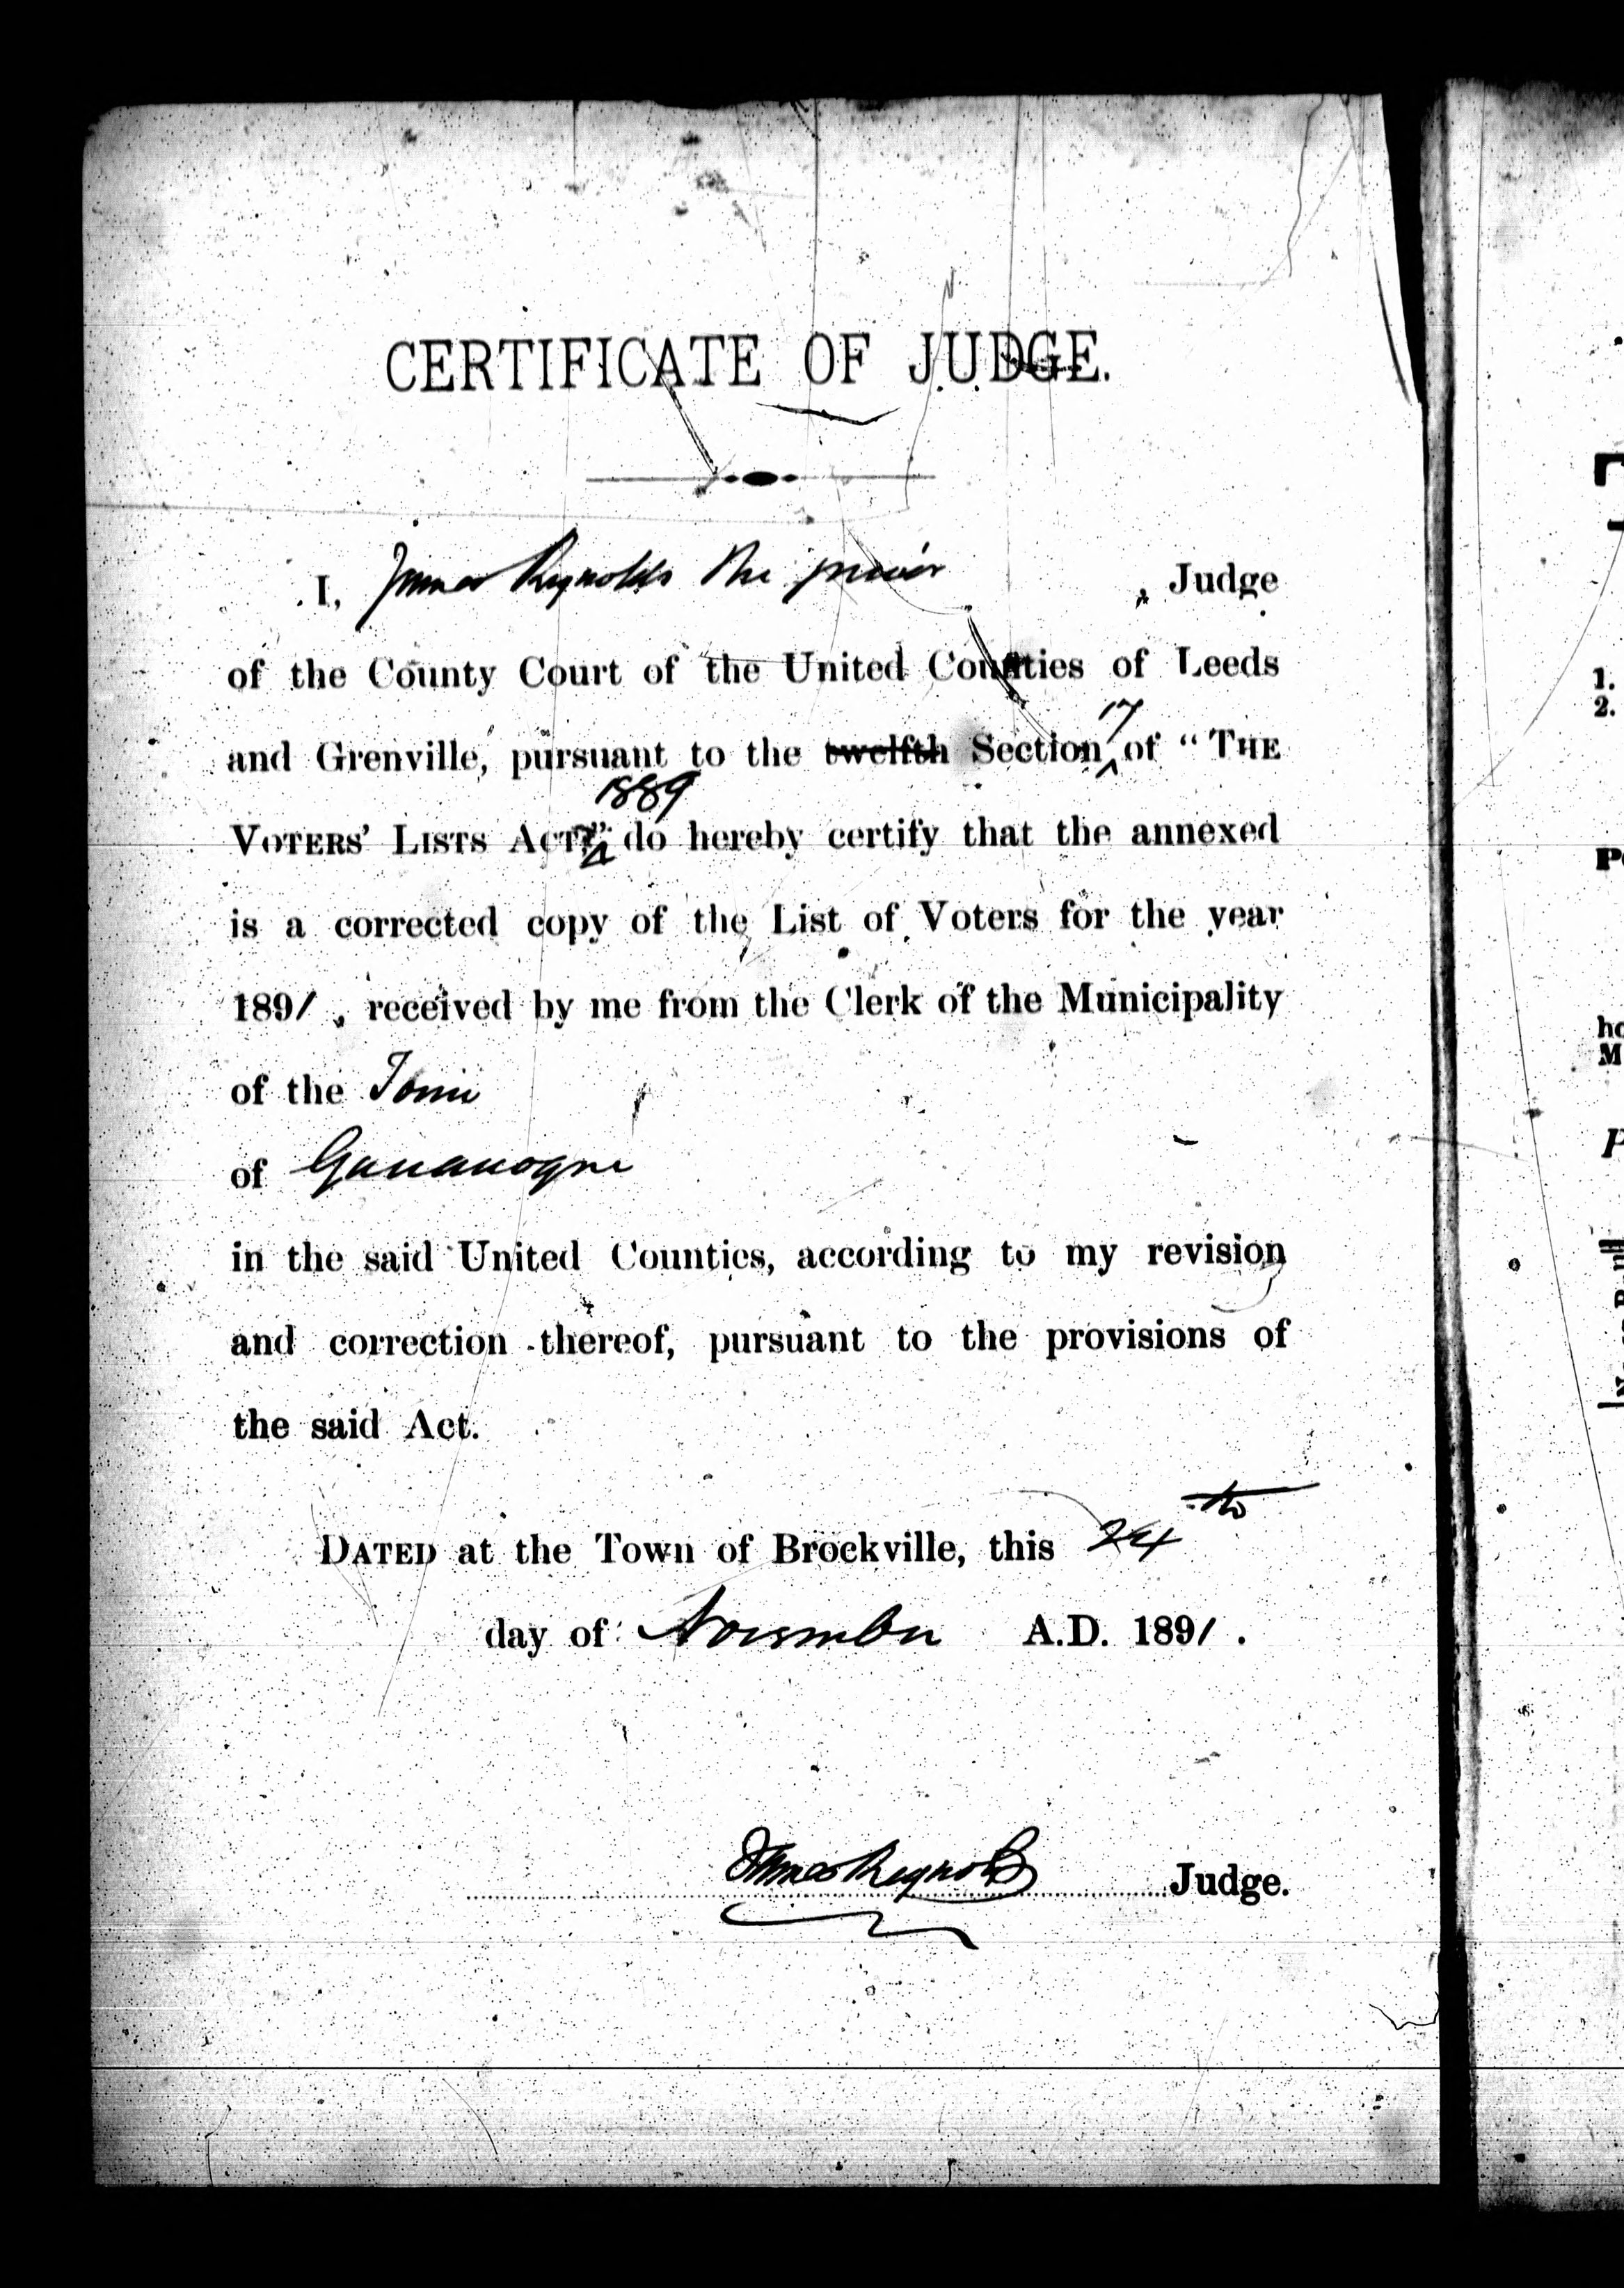 CERTIFICATE OF JUDGE.
I, James Reynolds the junior, Judge
of the County Court of the United Counties of Leeds
and Grenville, pursuant to the twelfth Section 17 of "THE
VOTERS' LISTS ACT," 1889 do hereby certify that the annexed
is a corrected copy of the List of Voters for the year
1891, received by me from the Clerk of the Municipality
of the Town
of Gananoque
in the said United Counties, according to my revision
and correction thereof, pursuant to the provisions of
the said Act.
DATED at the Town of Brockville, this 24th
day of November A.D. 1891.
James Reynolds Judge.
1.
2.